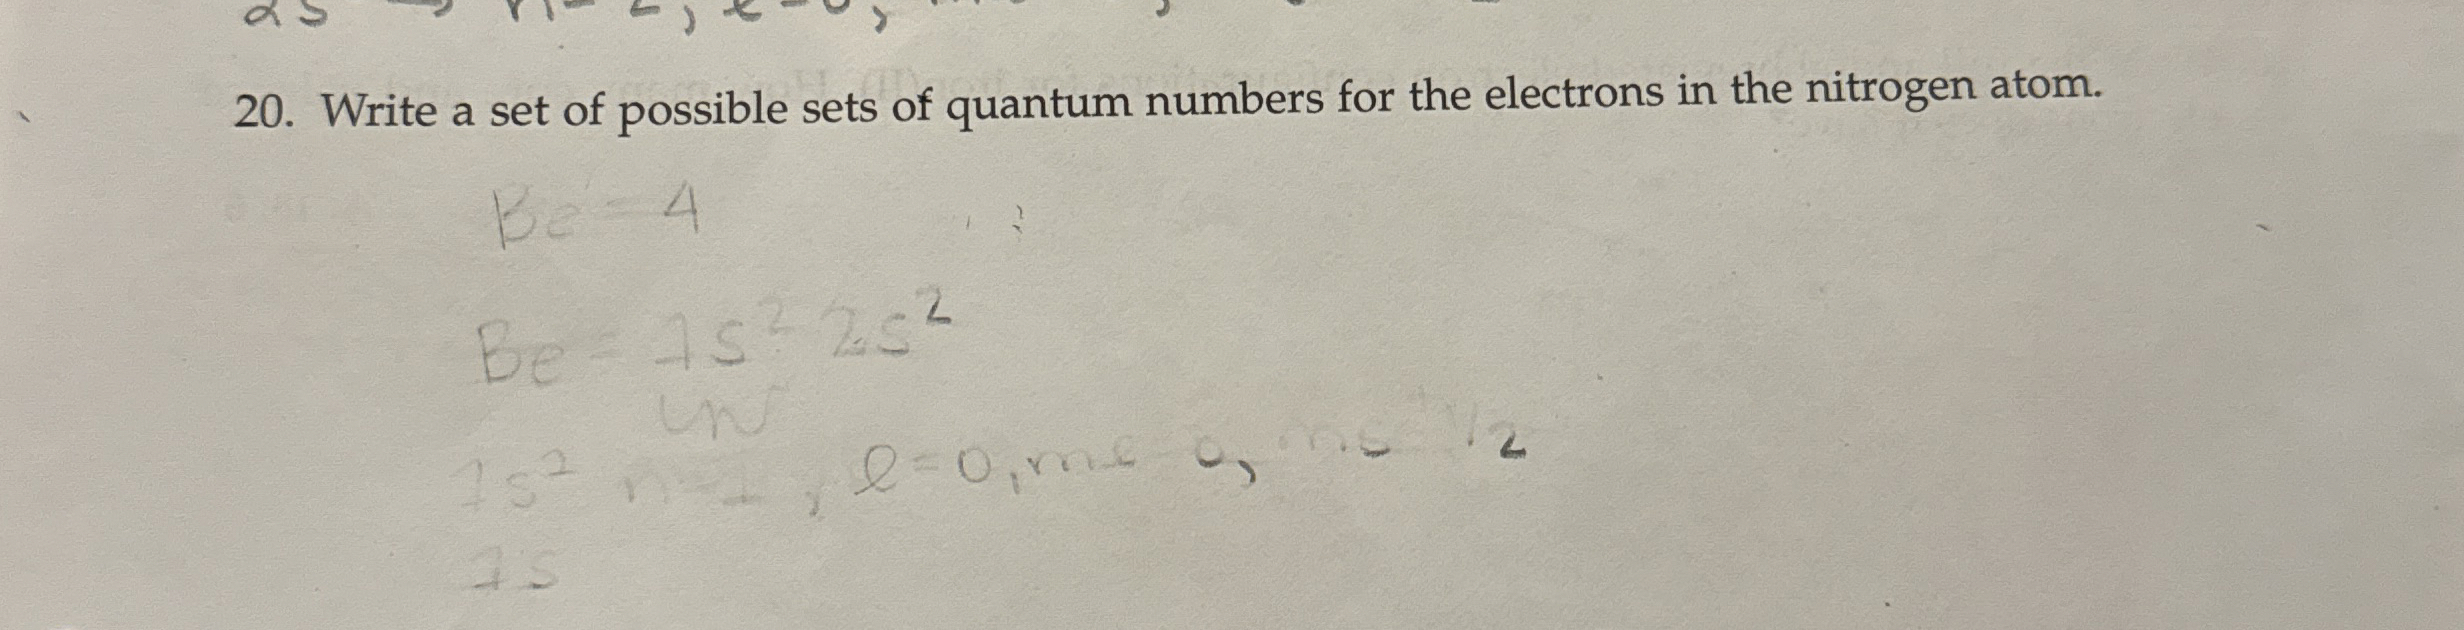 2s → n=2, l=0,
20. Write a set of possible sets of quantum numbers for the electrons in the nitrogen atom.
Be = 4
Be = 1s² 2s²
1s² n=1, l=0, ml=0, ms 1/2
1s